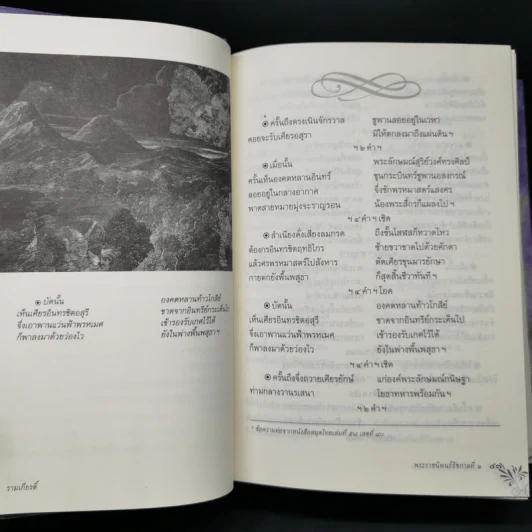 ๏ บัดนั้น องคตหลานท้าวโกสีย์
เห็นเศียรอินทรชิตอสุรี ขาดจากอินทรีย์กระเด็นไป
จึงเอาพานแว่นฟ้าพรหเมศ เข้ารองรับเกศไว้ได้
ก็พาลงมาด้วยว่องไว ยังในพ่างพื้นพสุธา ฯ
รามเกียรติ์
๏ ครั้นถึงตรงเนินจักรวาล ชูพานลอยอยู่ในเวหา
คอยจะรับเศียรอสุรา มิให้ตกลงมาถึงแผ่นดิน ฯ
ฯ ๒ คำ ฯ
๏ เมื่อนั้น พระลักษมณ์สุริย์วงศ์ทรงศิลป์
ครั้นเห็นองคตหลานอินทร์ ขุนกระบินทร์ชูพานอลงกรณ์
ลอยอยู่ในกลางอากาศ จึงชักพรหมาสตร์แสงศร
พาดสายหมายมุ่งจะราญรอน น้องพระสี่กรก็แผลงไป ฯ
ฯ ๔ คำ ฯ เชิด
๏ สำเนียงดั่งเสียงลมกรด ถึงชั้นโสฬสก็หวาดไหว
ต้องกรอินทรชิตฤทธิไกร ซ้ายขวาขาดไปด้วยศักดา
แล้วศรพรหมาสตร์ไปสังหาร ตัดเศียรขุนมารยักษา
กายตกยังพื้นพสุธา ก็สุดสิ้นชีวาทันที ฯ
ฯ ๔ คำ ฯ โอด
๏ บัดนั้น องคตหลานท้าวโกสีย์
เห็นเศียรอินทรชิตอสุรี ขาดจากอินทรีย์กระเด็นไป
จึงเอาพานแว่นฟ้าพรหเมศ เข้ารองรับเกศไว้ได้
ก็พาลงมาด้วยว่องไว ยังในพ่างพื้นพสุธา ฯ
ฯ ๔ คำ ฯ เชิด
๏ ครั้นถึงจึ่งถวายเศียรยักษ์ แก่องค์พระลักษมณ์กนิษฐา
ท่ามกลางวานรเสนา โยธาทหารพร้อมกัน ฯ
ฯ ๒ คำ ฯ
พระราชนิพนธ์รัชกาลที่ ๑